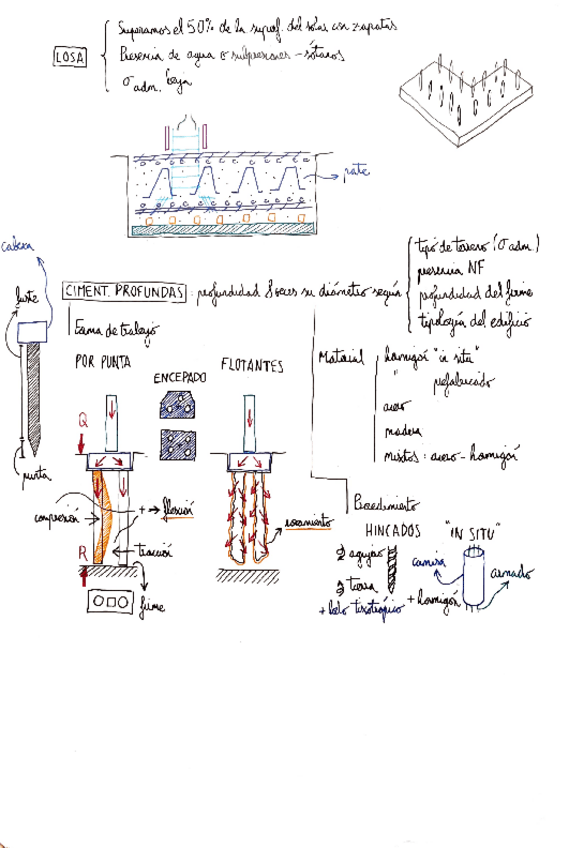 LOSA
Superamos el 50% de la superf. del solar con zapatas
Presencia de agua o subpresiones - sótanos
σ adm. baja
pate
cabeza
fuste
punta
CIMENT. PROFUNDAS : profundidad 8 veces su diámetro según
tipo de terreno (σ adm.)
presencia NF
profundidad del firme
tipología del edificio
Forma de trabajo
POR PUNTA
ENCEPADO
FLOTANTES
Q
compresión
+ → flexión
R
tracción
firme
rozamiento
Material
hormigón "in situ"
" prefabricado
acero
madera
mixtos: acero - hormigón
Procedimiento
HINCADOS
"IN SITU"
agujero
tierra
+ lodo tixotrópico
camisa
+ hormigón
armado